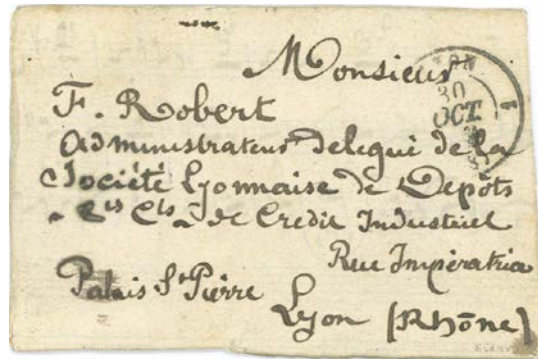 Monsieur
F. Robert
Administrateur delegué de la
Société Lyonnaise de Depôts
& Cts Cts & de Credit Industriel
Rue Impératrice
Palais St Pierre
Lyon (Rhône)
30
OCT